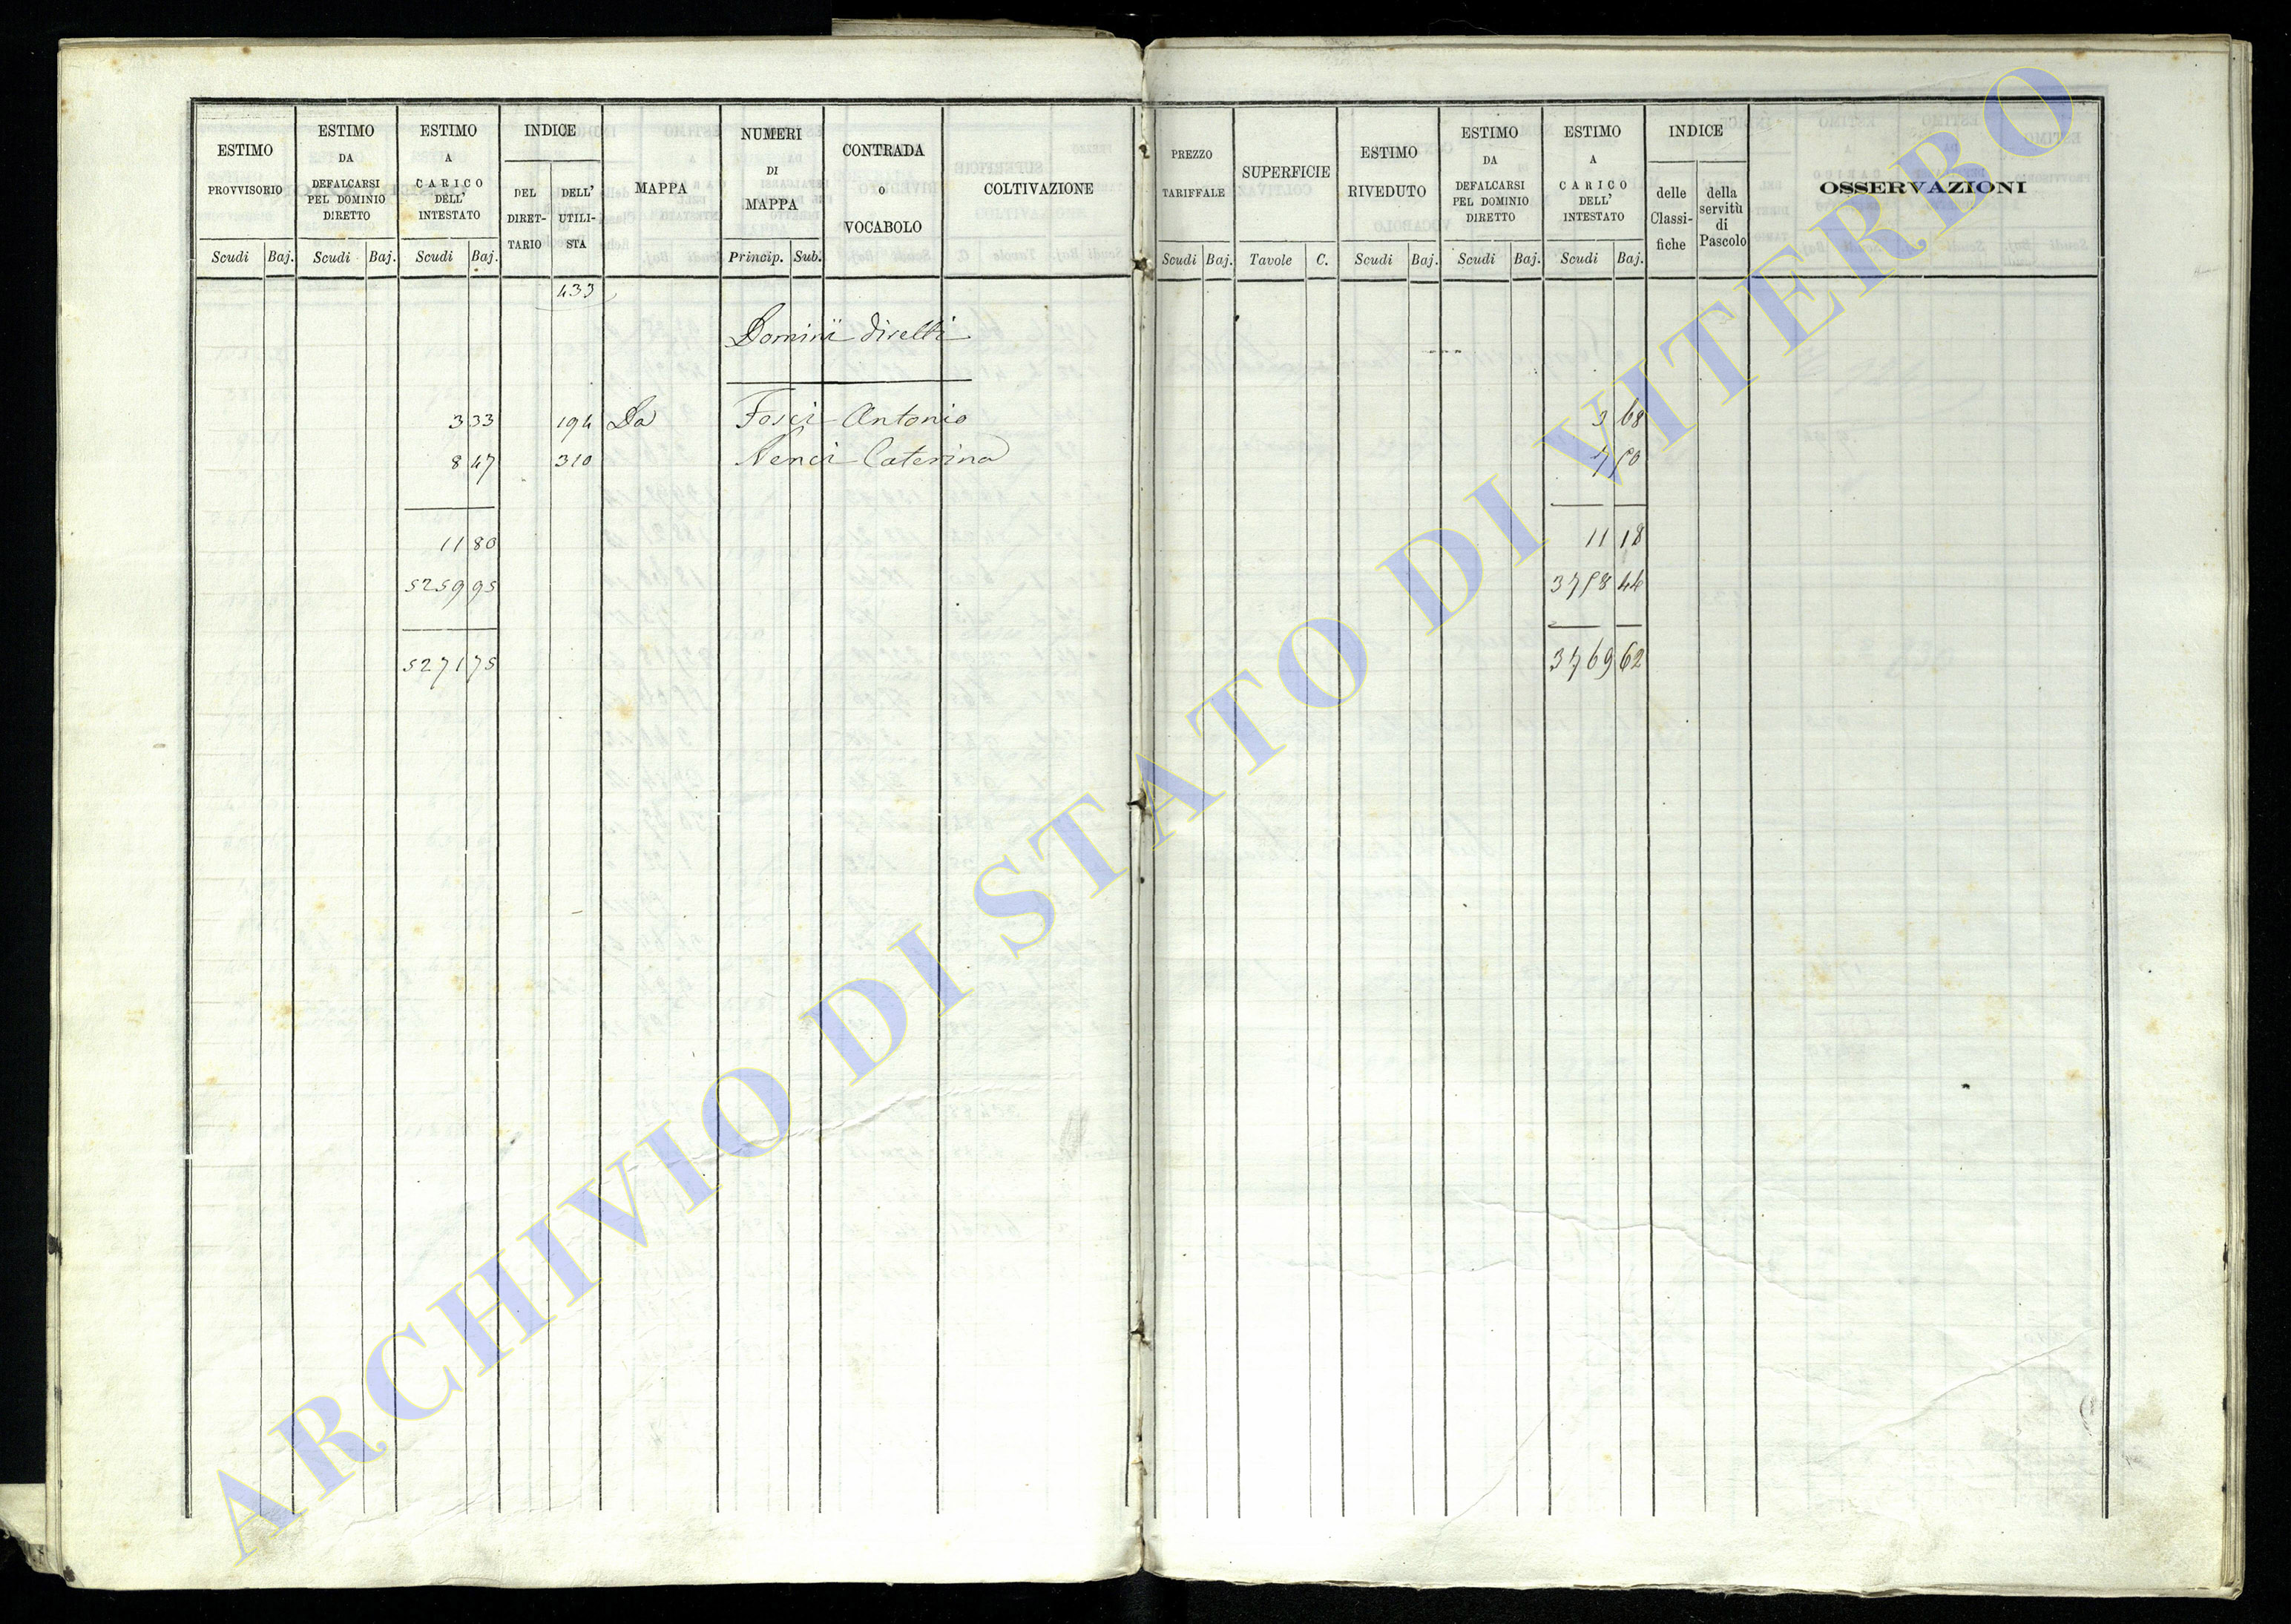 ESTIMO PROVVISORIO
Scudi Baj.
ESTIMO DA DEFALCARSI PEL DOMINIO DIRETTO
Scudi Baj.
ESTIMO A CARICO DELL' INTESTATO
Scudi Baj.
INDICE
DEL DIRET-TARIO
DELL' UTILI-STA
MAPPA
NUMERI DI MAPPA
Princip. Sub.
CONTRADA O VOCABOLO
COLTIVAZIONE
PREZZO TARIFFALE
Scudi Baj.
SUPERFICIE
Tavole C.
ESTIMO RIVEDUTO
Scudi Baj.
ESTIMO DA DEFALCARSI PEL DOMINIO DIRETTO
Scudi Baj.
ESTIMO A CARICO DELL' INTESTATO
Scudi Baj.
INDICE
delle Classi-fiche
della servitù di Pascolo
OSSERVAZIONI
433
Dominii diretti
3 33 194 Da Fosci Antonio 3 68
8 47 310 Nenci Caterina 7 50
11 80 11 18
5259 95 3758 44
5271 75 3769 62
ARCHIVIO DI STATO DI VITERBO